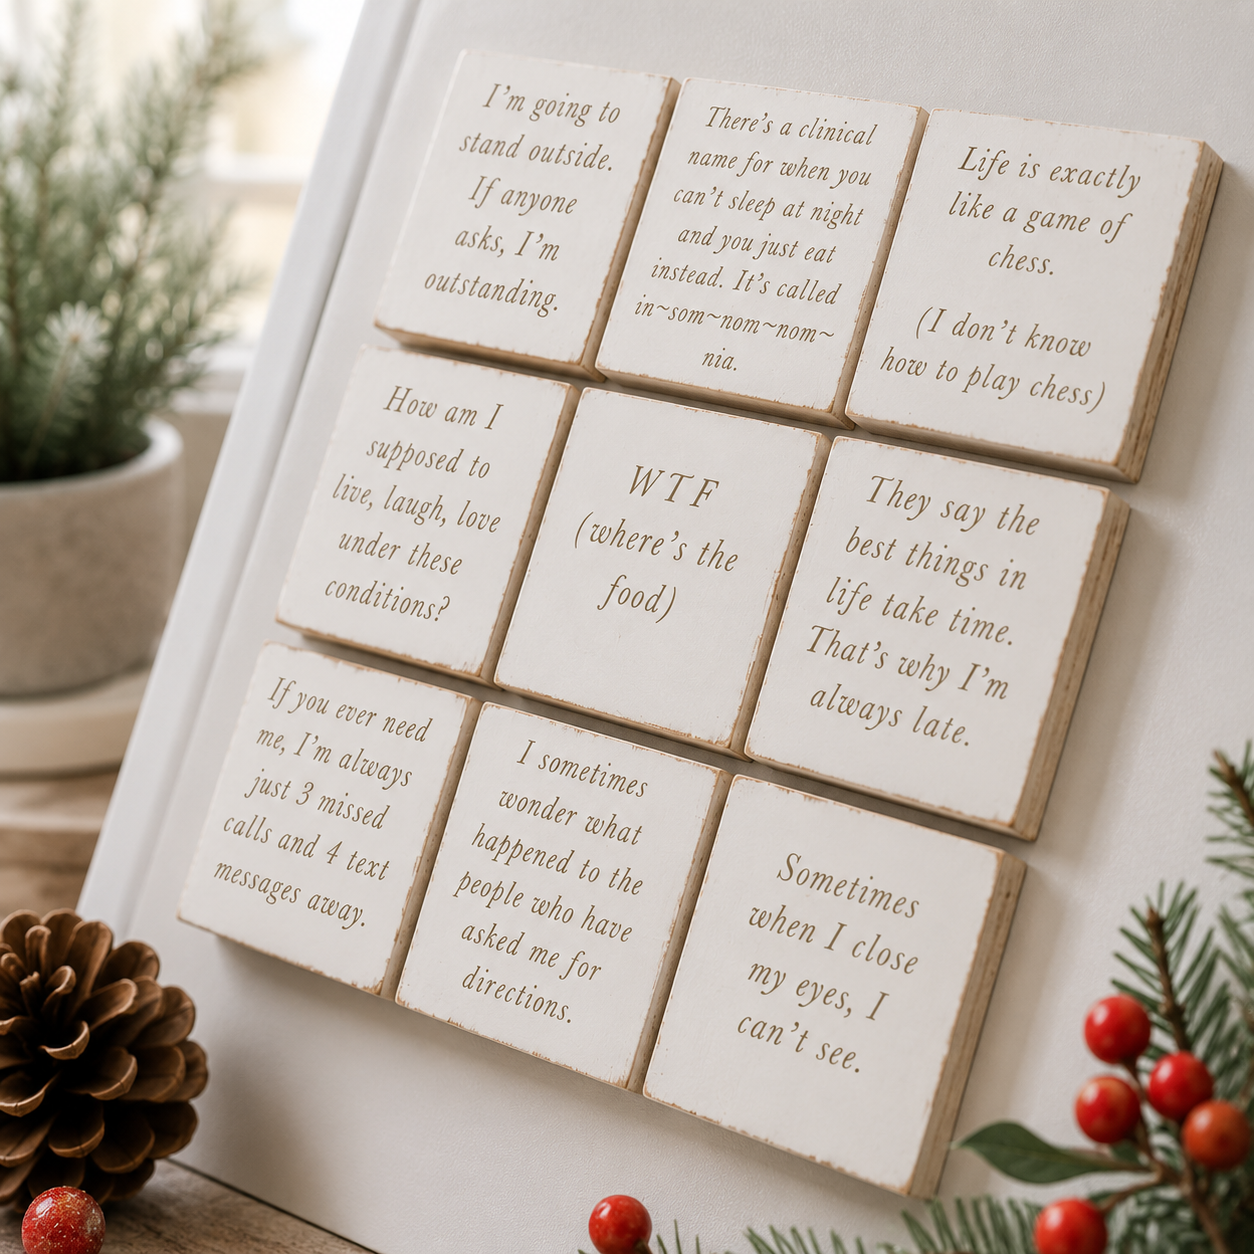 I'm going to
stand outside.
If anyone
asks, I'm
outstanding.
There's a clinical
name for when you
can't sleep at night
and you just eat
instead. It's called
in~som~nom~nom~
nia.
Life is exactly
like a game of
chess.
(I don't know
how to play chess)
How am I
supposed to
live, laugh, love
under these
conditions?
WTF
(where's the
food)
They say the
best things in
life take time.
That's why I'm
always late.
If you ever need
me, I'm always
just 3 missed
calls and 4 text
messages away.
I sometimes
wonder what
happened to the
people who have
asked me for
directions.
Sometimes
when I close
my eyes, I
can't see.